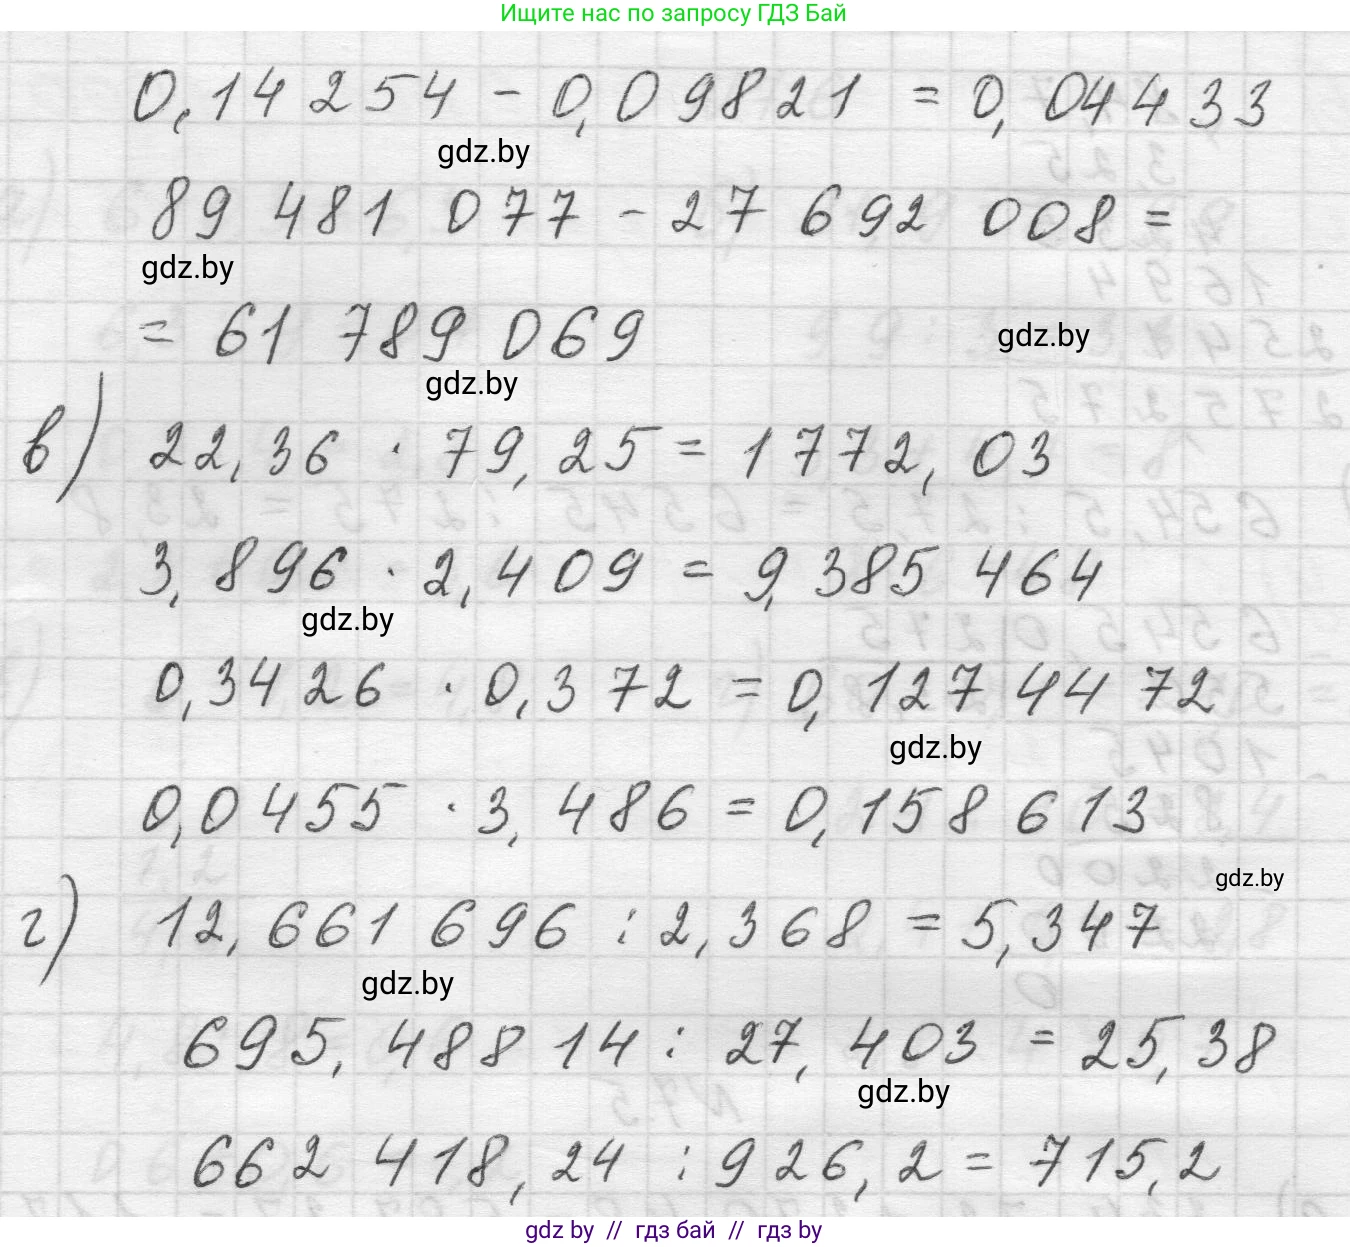 Ищите нас по запросу ГДЗ Бай
0,14254 - 0,09821 = 0,04433
gdz.by
89 481 077 - 27 692 008 =
gdz.by
= 61 789 069
gdz.by
gdz.by
в) 22,36 · 79,25 = 1772,03
3,896 · 2,409 = 9,385 464
gdz.by
0,3426 · 0,372 = 0,127 44 72
gdz.by
0,0455 · 3,486 = 0,158 613
gdz.by
г) 12,661 696 : 2,368 = 5,347
gdz.by
695,488 14 : 27,403 = 25,38
gdz.by
662 418,24 : 926,2 = 715,2
gdz by // гдз бай // гдз by